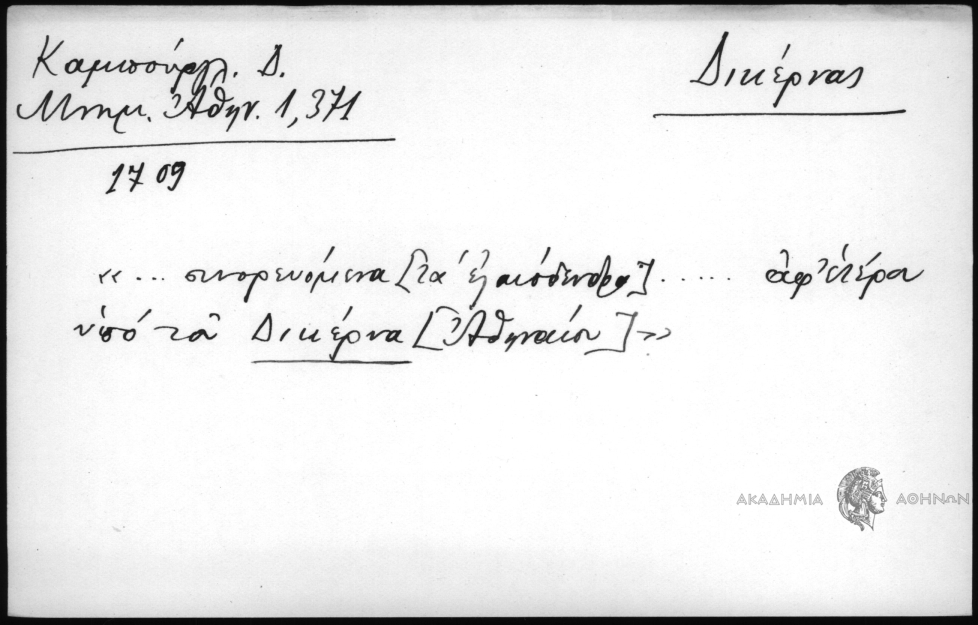 Καμπούργλ. Δ.
Μνημ. Ἀθην. 1, 371
1709
Δικέρνας
«... συνορευόμενα [τὰ ἐλαιόδενδρα] ..... ἀφ' ἑτέρου
ὑπό τοῦ Δικέρνα [Ἀθηναίου]»
ΑΚΑΔΗΜΙΑ ΑΘΗΝΩΝ